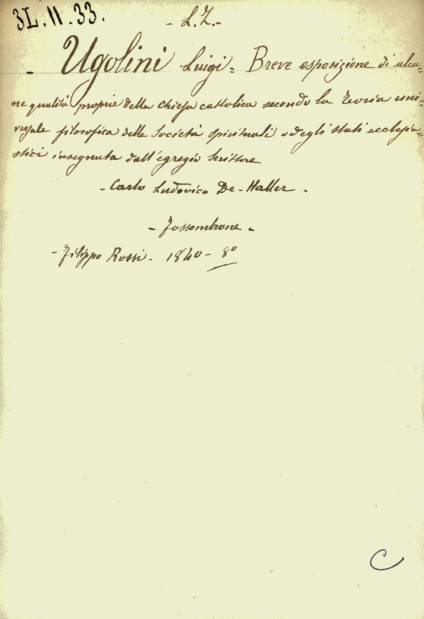 3L.II.33.
- L.Z.-
- Ugolini Luigi = Breve esposizione di alcu-
ne qualità proprie della Chiesa cattolica secondo la Teoria uni-
versale filosofica delle Società spirituali e degli stati ecclesia-
stici insegnata dall'egregio Scrittore
- Carlo Ludovico De-Haller -
- Fossombrone -
- Filippo Rossi. 1840 - 8°
C